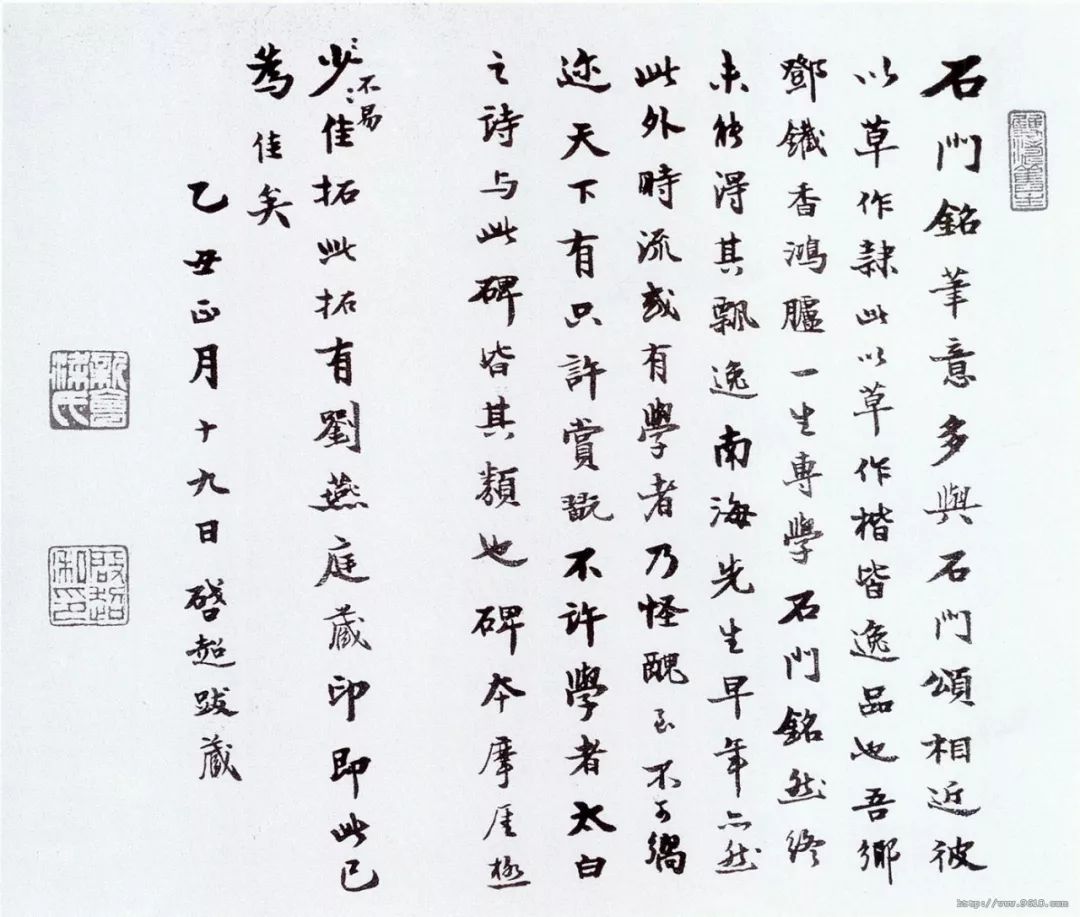 石門銘筆意多與石門頌相近彼
以草作隷此以草作楷皆逸品也吾鄉
鄧鐵香鴻臚一生專學石門銘然終
未能得其飄逸南海先生早年亦然
此外時流或有學者乃怪醜至不可嚮
迩天下有只許賞翫不許學者太白
之詩与此碑皆其類也碑本摩厓極
少不易佳拓此拓有劉燕庭藏印即此已
為佳矣
乙丑正月十九日啓超跋藏
新會梁氏
啟超私印
http://www.9610.com